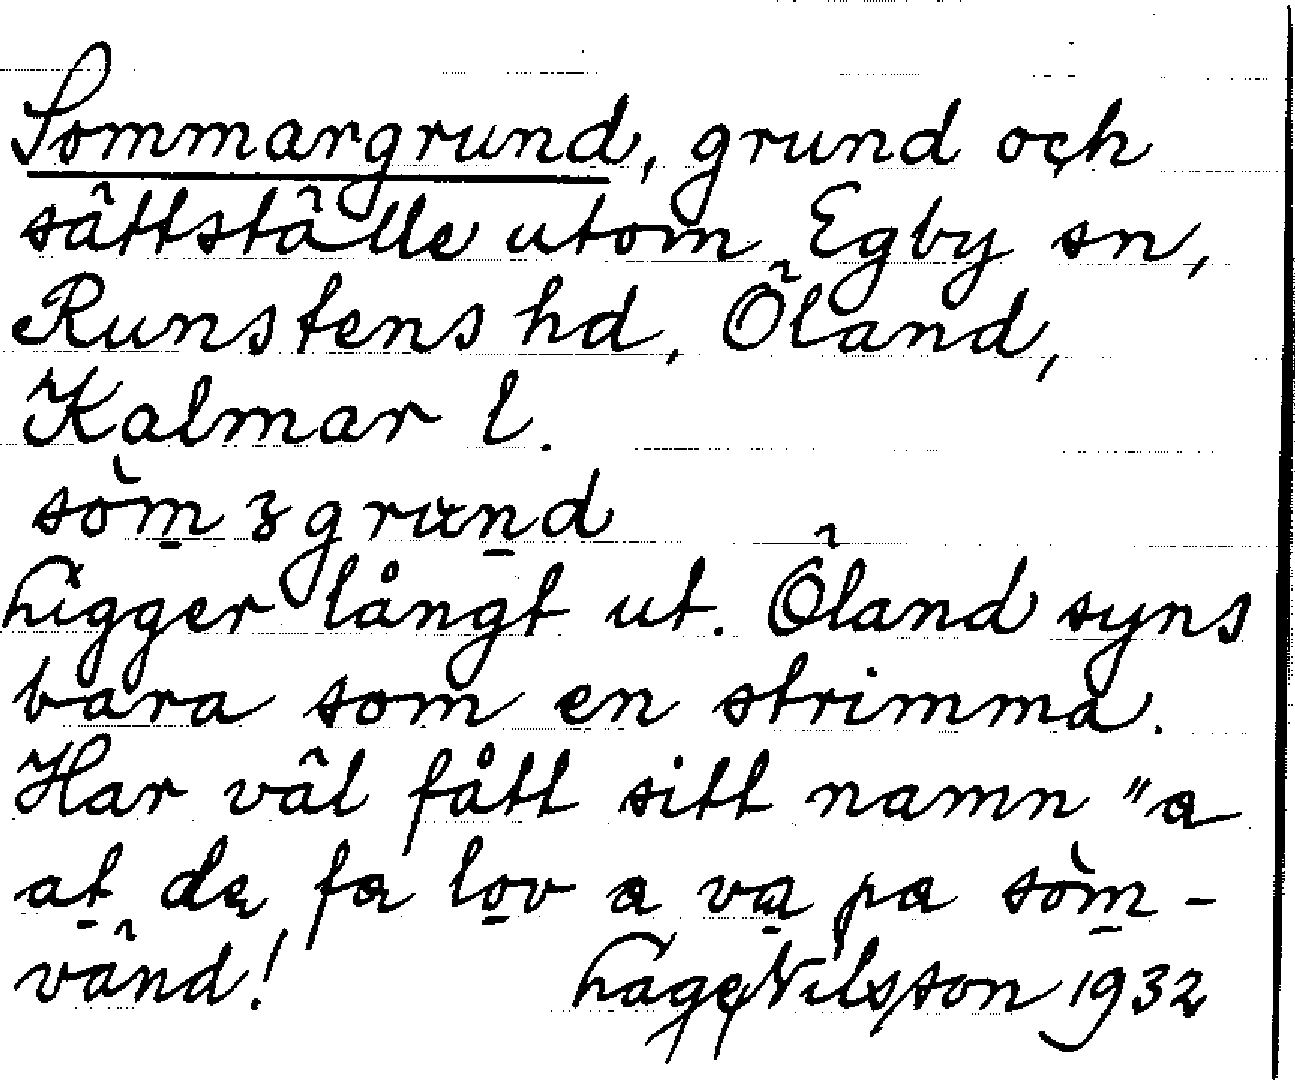 Sommargrund, grund och
sättställe utom Egby sn,
Runstens hd, Öland,
Kalmar l.
sòm̲ɜgrun̲d
Ligger långt ut. Öland syns
bara som en strimma.
Har väl fått sitt namn "a
at̲ de fa lo̲v a va̲ pa sòm̲-
vänd!
Lage Nilsson 1932